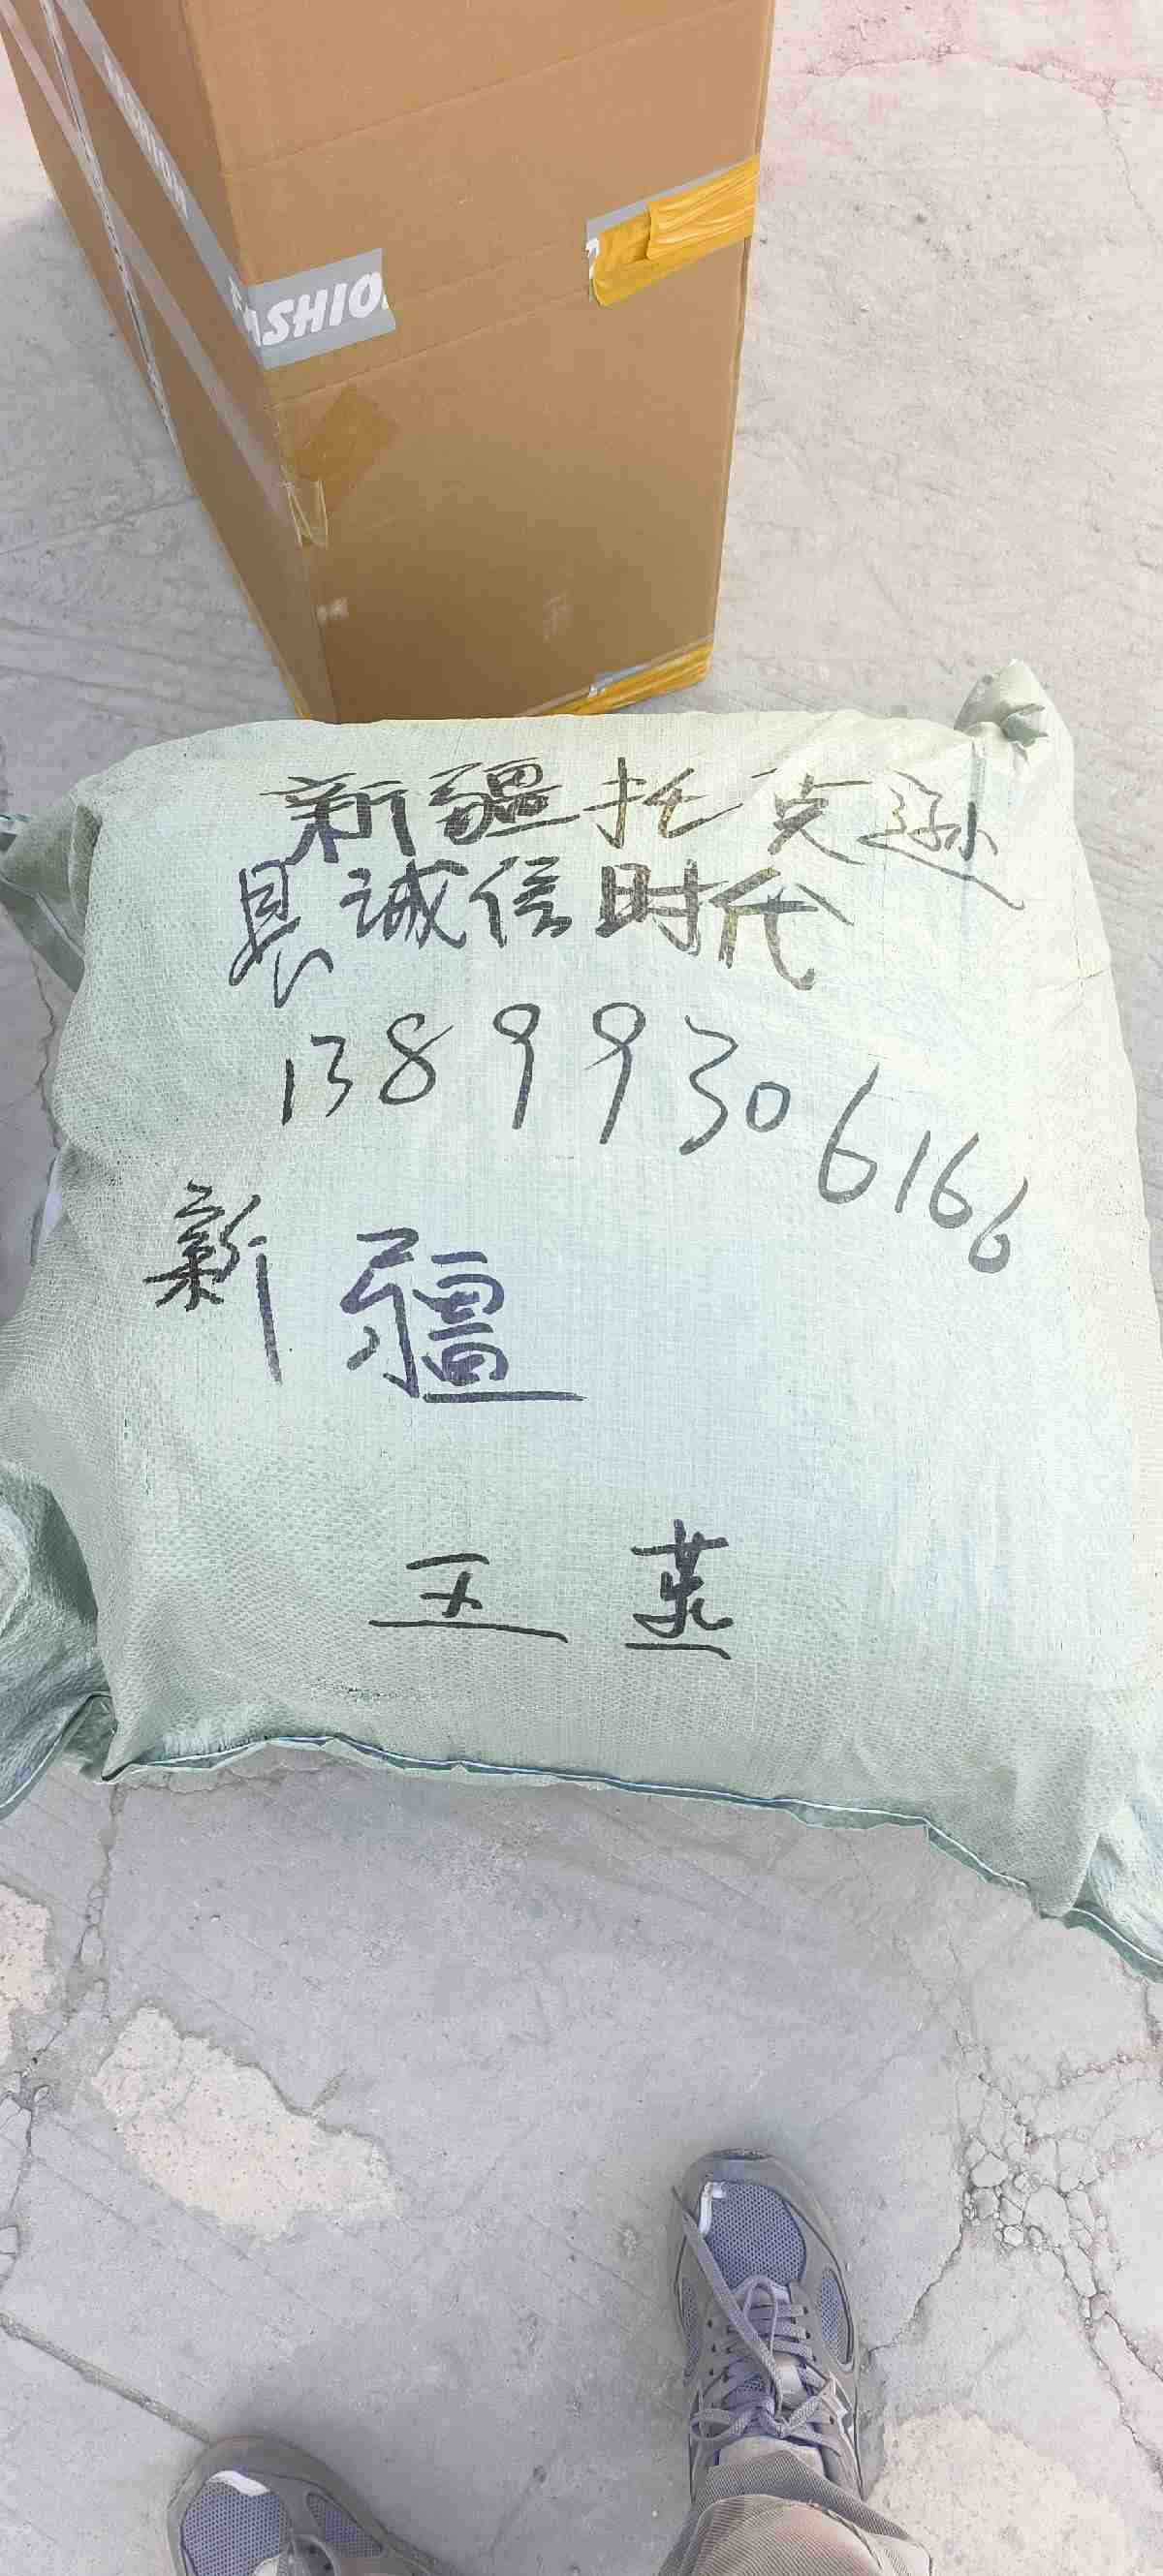 ASHIO
新疆托克逊
县诚信时代
13899306166
新疆
王燕